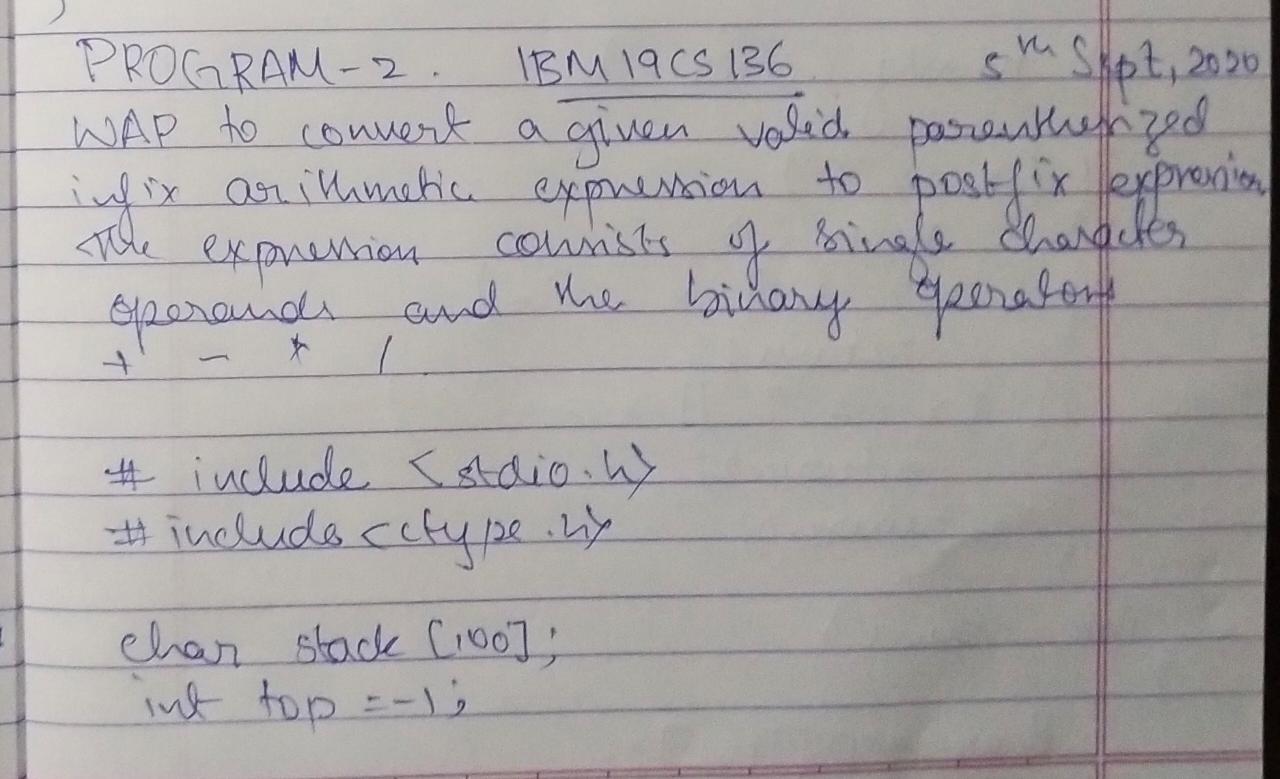 PROGRAM-2. 1BM19CS136 5th Sept, 2020
WAP to convert a given valid parenthesized
infix arithmetic expression to postfix expression
The expression consists of single character
operands and the binary operators
+ - * /
# include <stdio.h>
# include <ctype.h>
char stack [100];
int top =-1;